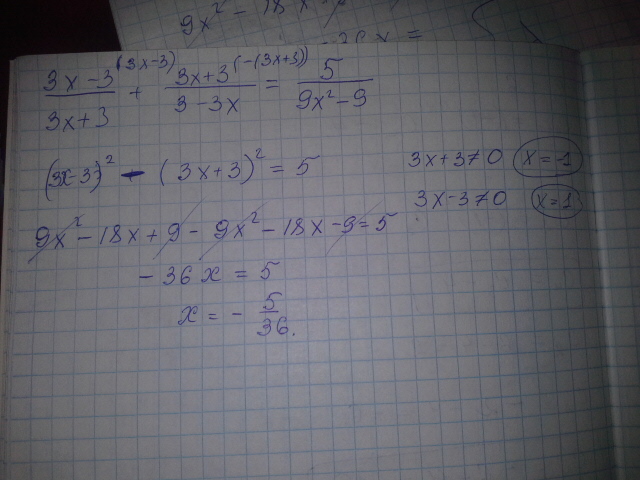 9x² - 18x
(3x-3)/(3x+3) ^(3x-3) + (3x+3)/(3-3x) ^(-(3x+3)) = 5/(9x²-9)
(3x-3)² - (3x+3)² = 5 3x+3≠0 x=-1
9x² - 18x + 9 - 9x² - 18x - 9 = 5 3x-3≠0 x=1
-36x = 5
x = - 5/36.